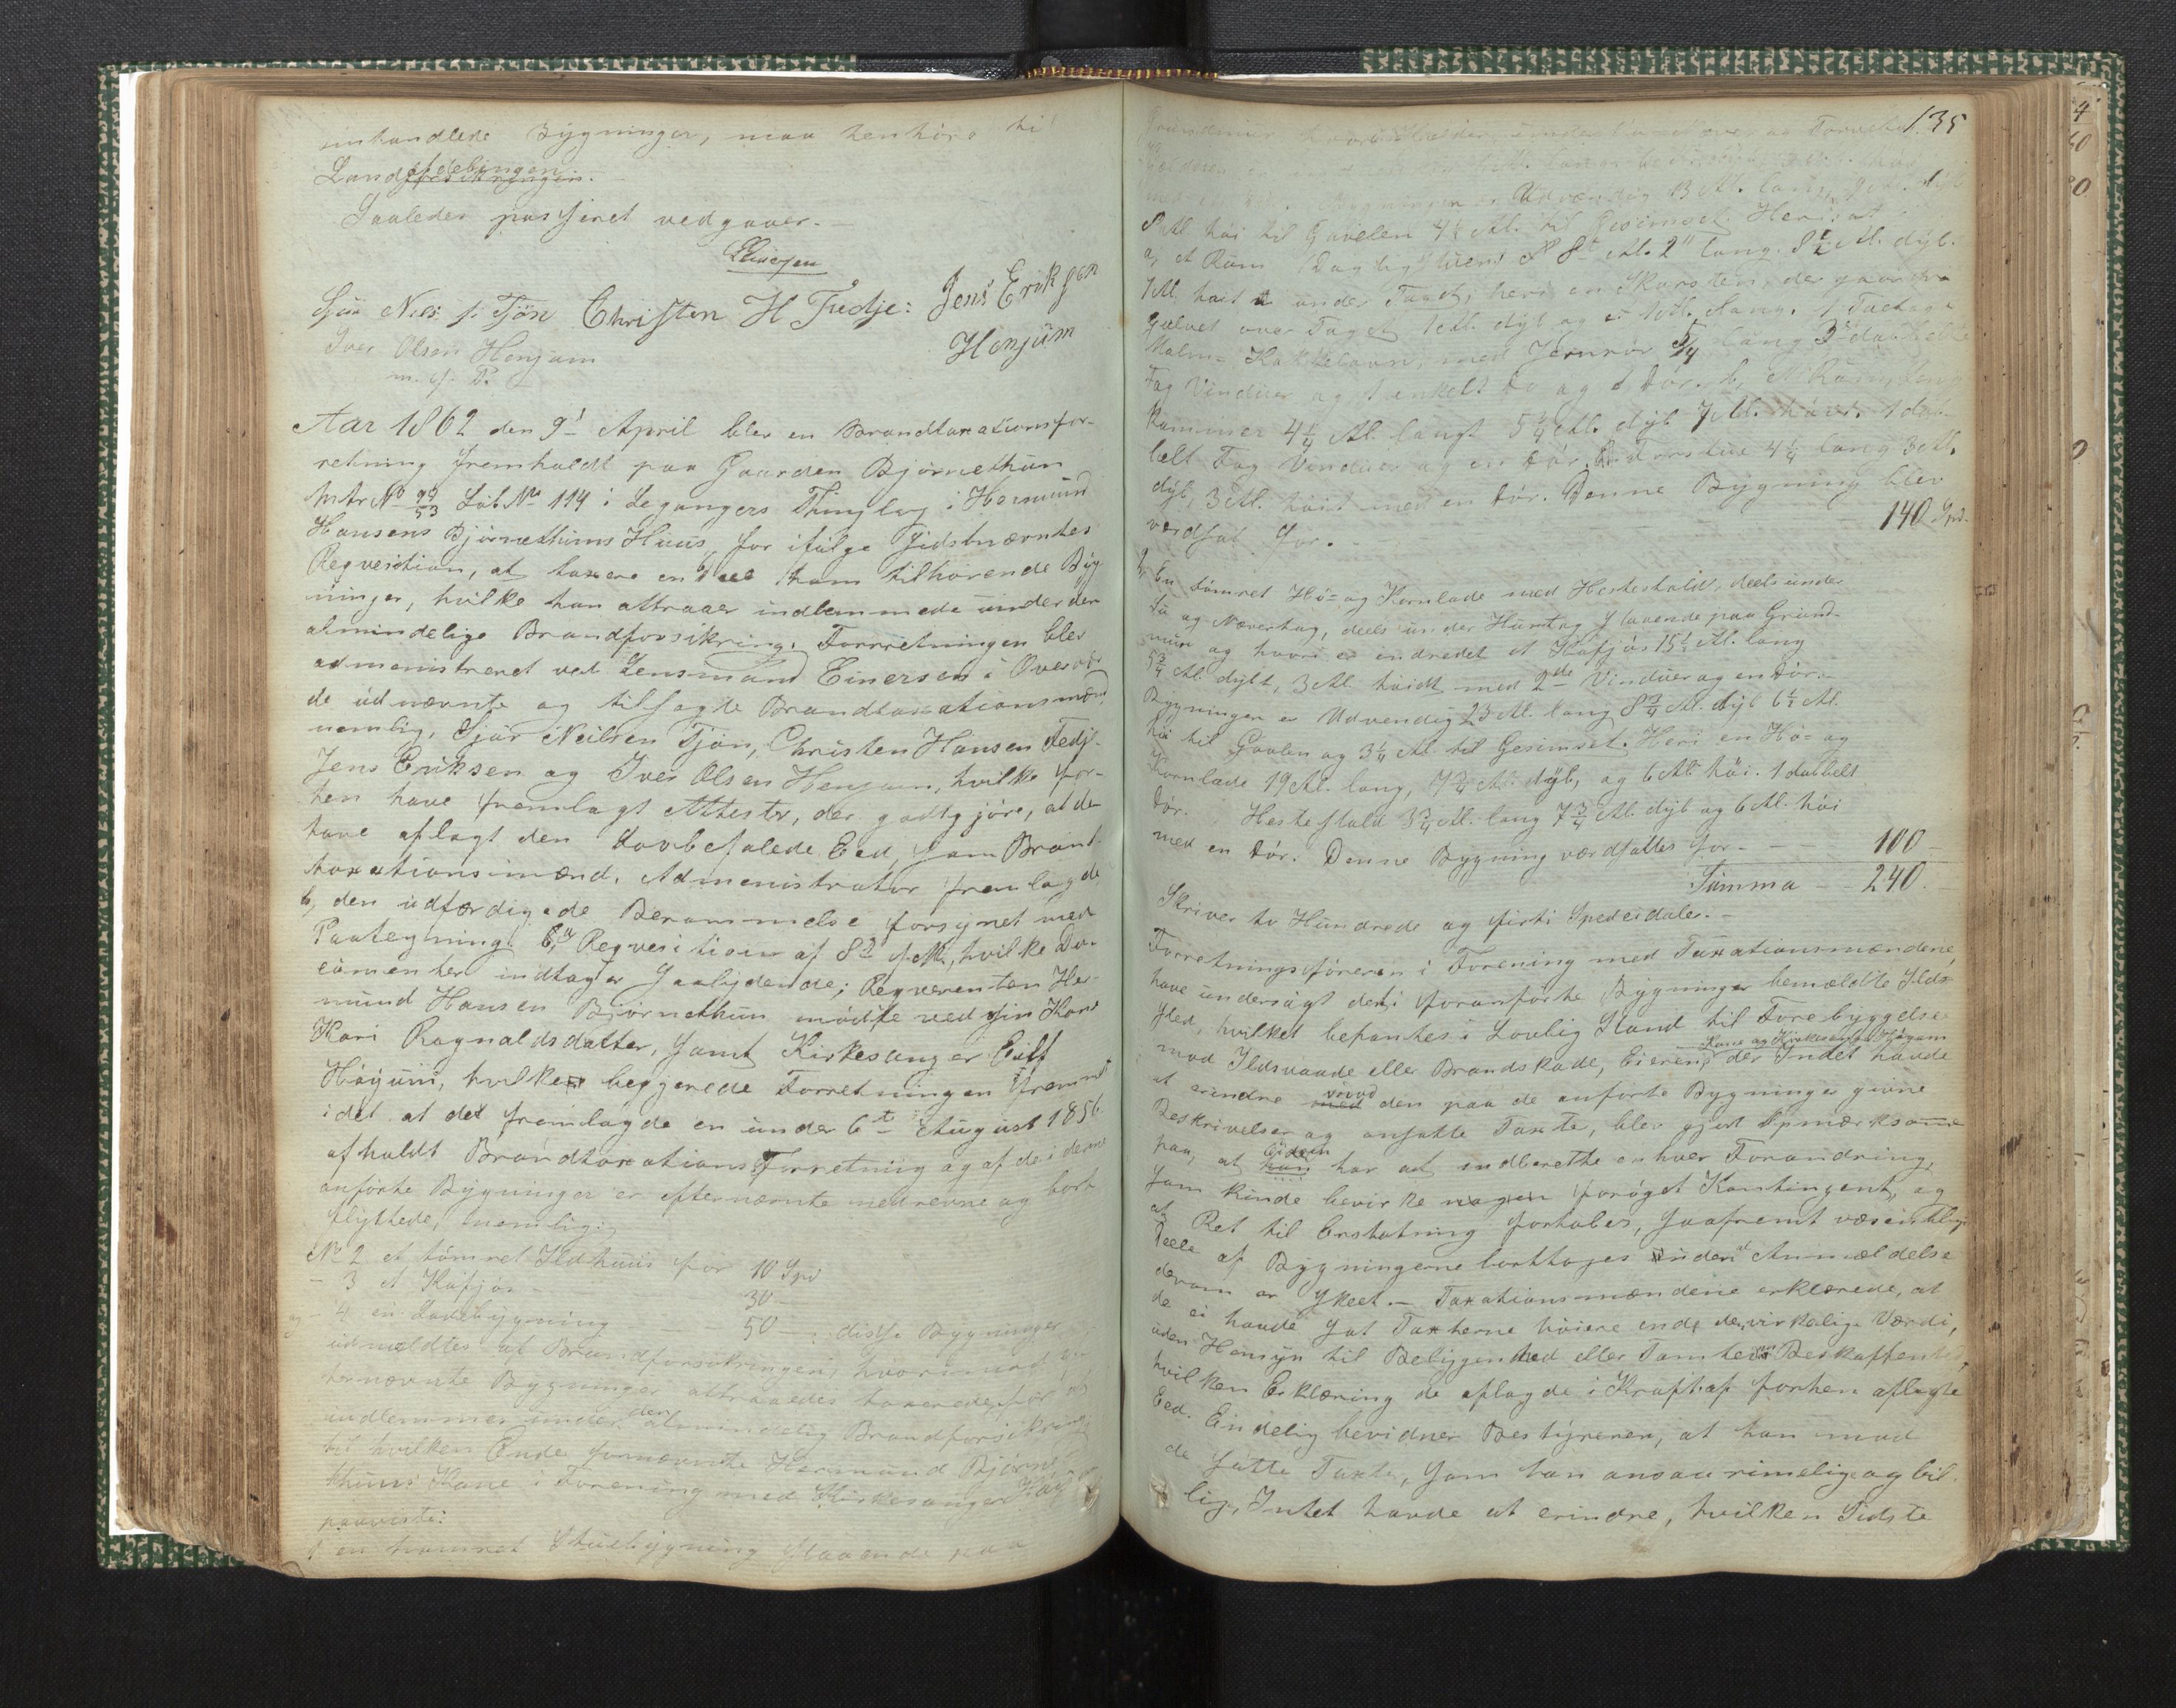 omhandlede Bygninger, maa henhøre til
Landafdelingen.
Saaledes passeret vedgaaer.
Einersen
Sjur Niels: s: Tjön Christen H Fedje: Jens Eriksen
Iver Olsen Henjum Henjüm
m. p. P.
Aar 1862 den 9d April blev en Brandtaxationsfor-
retning fremholdt paa Gaarden Bjørnethün
Mtr No 53 Löb No 114 i Leganger Thinglag i Hermünd
Hansens Bjørnethüns Huus, for ifølge Sidstnævntes
Reqvisition, at taxere en Deel ham tilhørende Byg-
ninger, hvilke han attraaer indlemmede ünder den
almindelige Brandforsikring. Forrretningen blev
administreret ved Lensmand Einersen i Overvær
de üdnævnte og tilsagde Brandtaxationsmænd,
nemlig, Sjür Neilsen Tjön, Christen Hansen Fedj-
Jens Eriksen og Iver Olsen Henjum, hvilke for-
hen have fremlagt Attester, der godtgjöre, at de
have aflagt den lovbefalede Eed, som Brand-
taxationsmænd. Administrator fremlagde
den üdfærdigede Berammelse forsynet med
Paategning. Reqvisition af 8d f. M., hvilke Do-
cümenter indtages Saalydende; Reqverenten Her-
münd Hansen Bjørnethün mödte ved sin Kone
Kari Ragnaldsdatter, samt Kirkesanger Eilf
Höyüm, hvilke begjerede Forretningen fremmet
idet at de fremlagde en ünder 6te Aügust 1856
afholdt Brandtaxations Forretning og af de i denne
anförte Bygninger er efternævnte nedrevne og bort
flyttede, nemlig:
No 2 et tömret Ildhuus for 10 Spd
- 3 et Küfjös 30 -
og - 4 en Ladebygning 50 - disse Bygninger
üdmeldtes af Brandforsikringen, hvorimod
nævnte Bygninger attraaedes taxerede for at
indlemmes ünder den almindelig Brandforsikring
til hvilken Ende fornævnte Hermünd Bjørne-
thüns Kone i Forening med Kirkesanger Höy
paaviste:
1 en tømret Stuebygning staaende paa
135
Bygningen er Udvendig 13 Al. lang, Al. dyb
Al. höi til Gavelen 4½ Al. til Gesimset. Heri at
a, et Rüm (Dagligstuen) 8 Al. 2" lang. 8½ Al. dyb.
7 Al. höit under Taget, heri en Skorsten, der gaar fra
Gulvet over Taget 1 Al. dyb og 1 Al. lang. 1
Malm- Kakkelovn, med Jernrör 5/4 lang 3 dobbelte
Fag Vindüer og 1 enkelt do og 1 Dör. b, et Rüm,
Kammer 4¼ Al. langt 5¾ Al. dyb 7 Al. höit. 1 dob-
belt Fag Vindüer og en Dör. Forstue 4¼ lang 3 Al.
dyb, 3 Al. höit med en Dör. Denne Bygning blev
værdsat for. 140 Spd.
2, En tömret Hö- og Kornlade med Hestestald, deels ünder
og Nævertag, deels ünder Hüntag staaende paa Gründ-
müur og hvori er indredet et Küfjös 15½ Al. lang
5¾ Al. dybt, 3 Al. höidt med 2de Vindüer og en Dör.-
Bygningen er Udvendig 23 Al. lang 8¾ Al. dyb 6½ Al.
höi til Gavlen og 3¼ Al. til Gesimset. Heri en Hö- og
Kornlade 19 Al. lang, 7¾ Al. dyb, og 6 Al. höi. 1 dobbelt
Dör. Hestestald 3¾ Al. lang 7¾ Al. dyb og 6 Al. höi
med en Dör. Denne Bygning værdsattes for - 100 -
Sümma - - 240.
Skriver to Hündrede og firti Speciedaler.-
Forretningsföreren i Forening med Taxationsmændene,
have ündersögt det i foranförte Bygninger bemældte Ild-
sted, hvilket befantes i Lovlig Stand til Forebyggelse
mod Ildsvaade eller Brandskade, Eierens Kone og Kirkesanger Höyum der Indet havde
at erindre mod den paa de anförte Bygninger givne
Beskrivelser og ansatte Taxte, blev gjort opmærksome
paa, at Eieren har at indberette enhver Forandring,
som künde bevirke nogen foröget Kontingent, og
at Ret til Erstatning fortabes, saafremt væsentlige
Deele af Bygningerne borttages üden at Anmældelse
derom er skeet. - Taxationsmændene erklærede, at
de ei havde sat Taxterne höiere end de virkelige Værdi,
uden Hensyn til Beliggenhed eller Tomtens Beskaffenhed,
hvilken Erklæring de aflagde i Kraft af forhen aflagte
Eed. Endelig bevidner Bestyreren, at han mod
de satte Taxter, som han ansaa rimelige og bil-
lige, Intet havde at erindre, hvilken Sidste